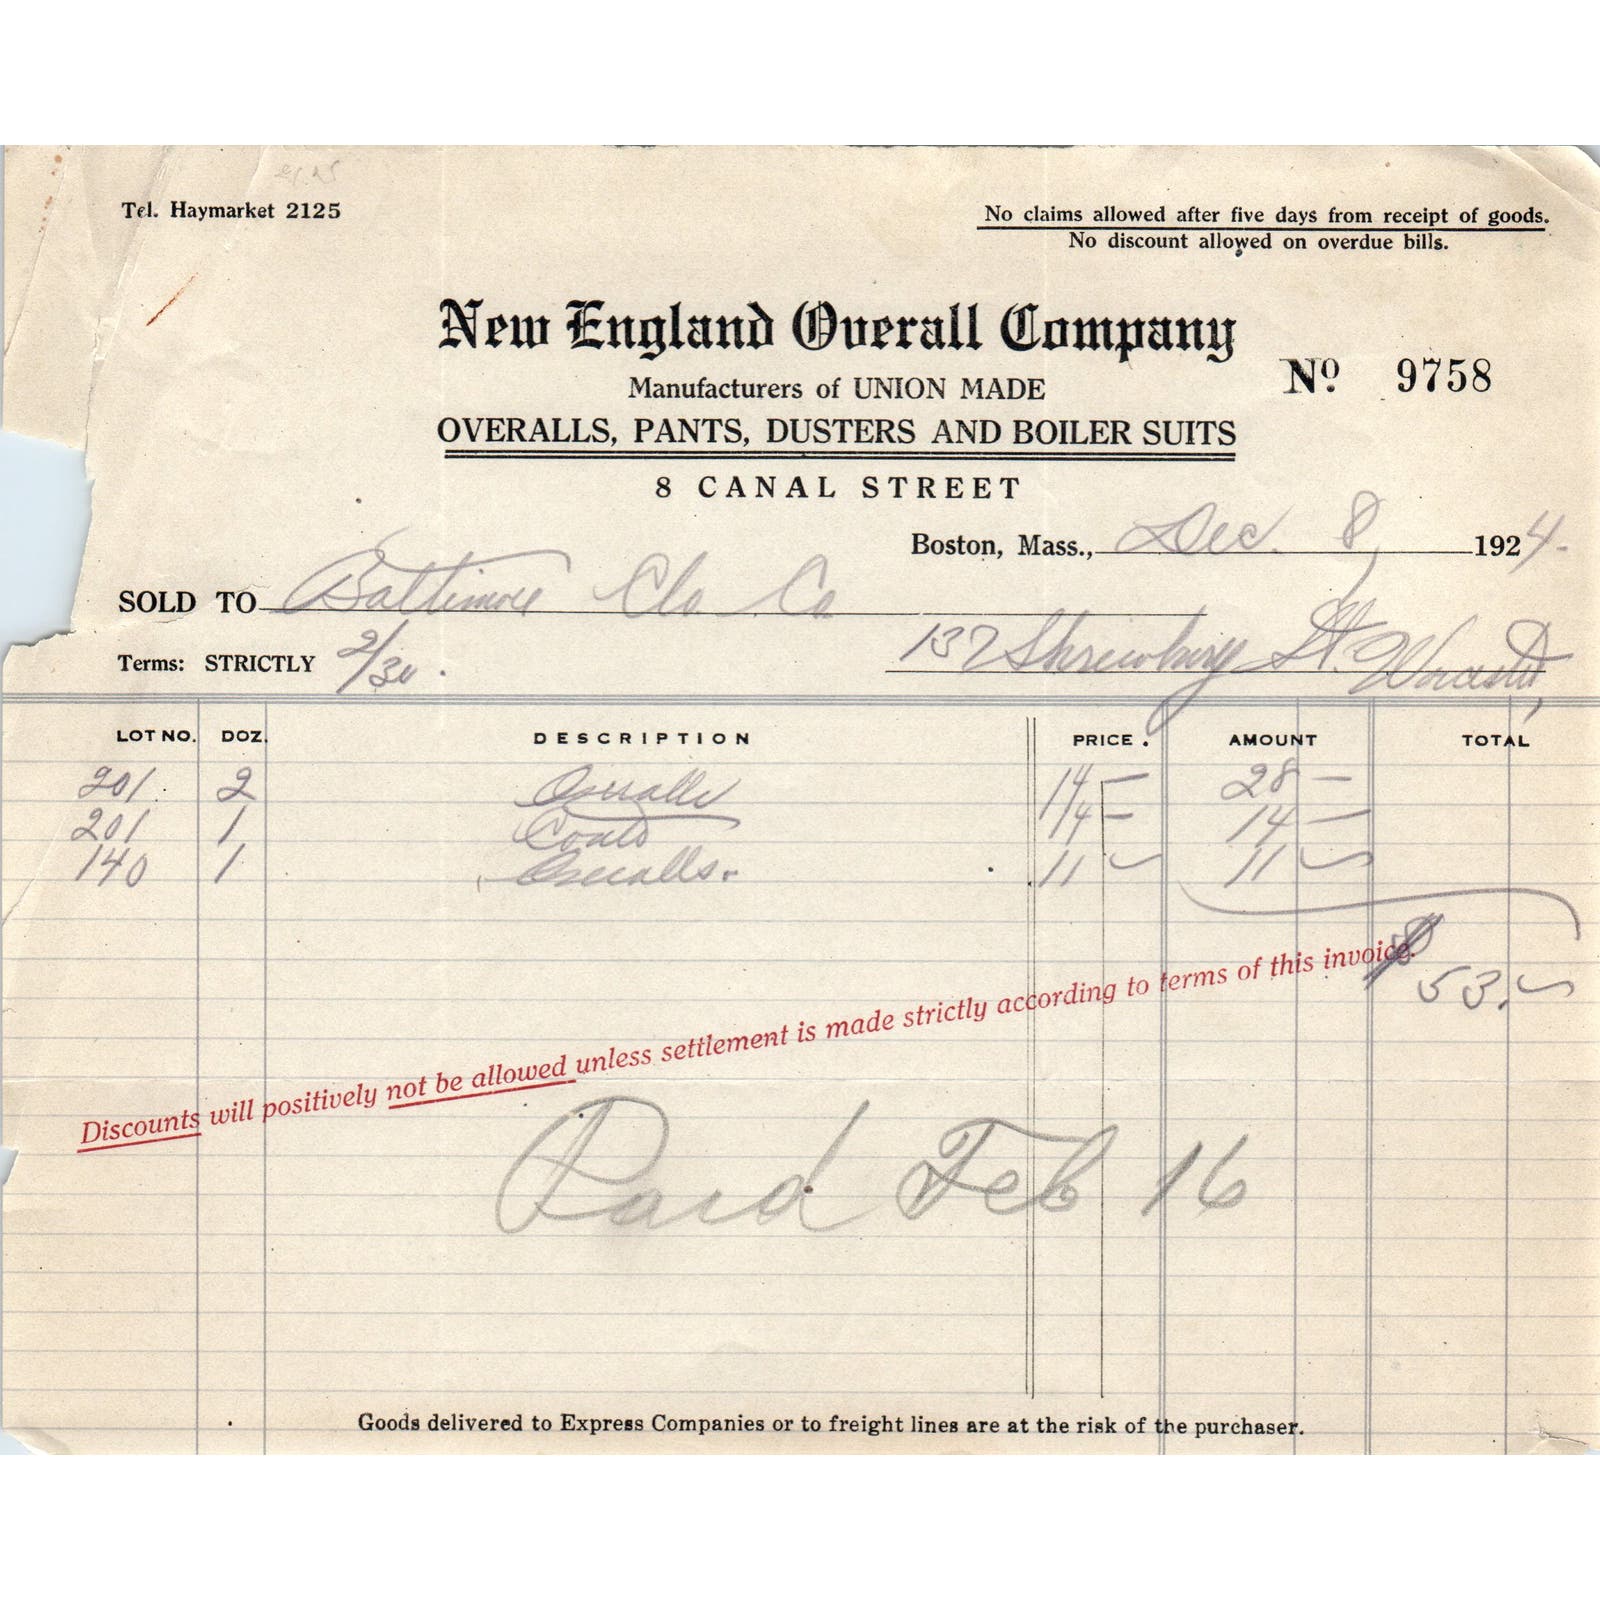 Tel. Haymarket 2125
No claims allowed after five days from receipt of goods.
No discount allowed on overdue bills.
New England Overall Company
Nº 9758
Manufacturers of UNION MADE
OVERALLS, PANTS, DUSTERS AND BOILER SUITS
8 CANAL STREET
Boston, Mass., Dec. 8, 1924.
SOLD TO Baltimore Clo Co
Terms: STRICTLY 2/30. 137 Shrewbury St. Worcester,
LOT NO. DOZ. DESCRIPTION PRICE. AMOUNT TOTAL
201. 2 Overalls 14 — 28 —
201 1 Coats 14 — 14 —
140 1 Overalls. 11 — 11 —
$ 53. —
Discounts will positively not be allowed unless settlement is made strictly according to terms of this invoice.
Paid Feb 16
Goods delivered to Express Companies or to freight lines are at the risk of the purchaser.